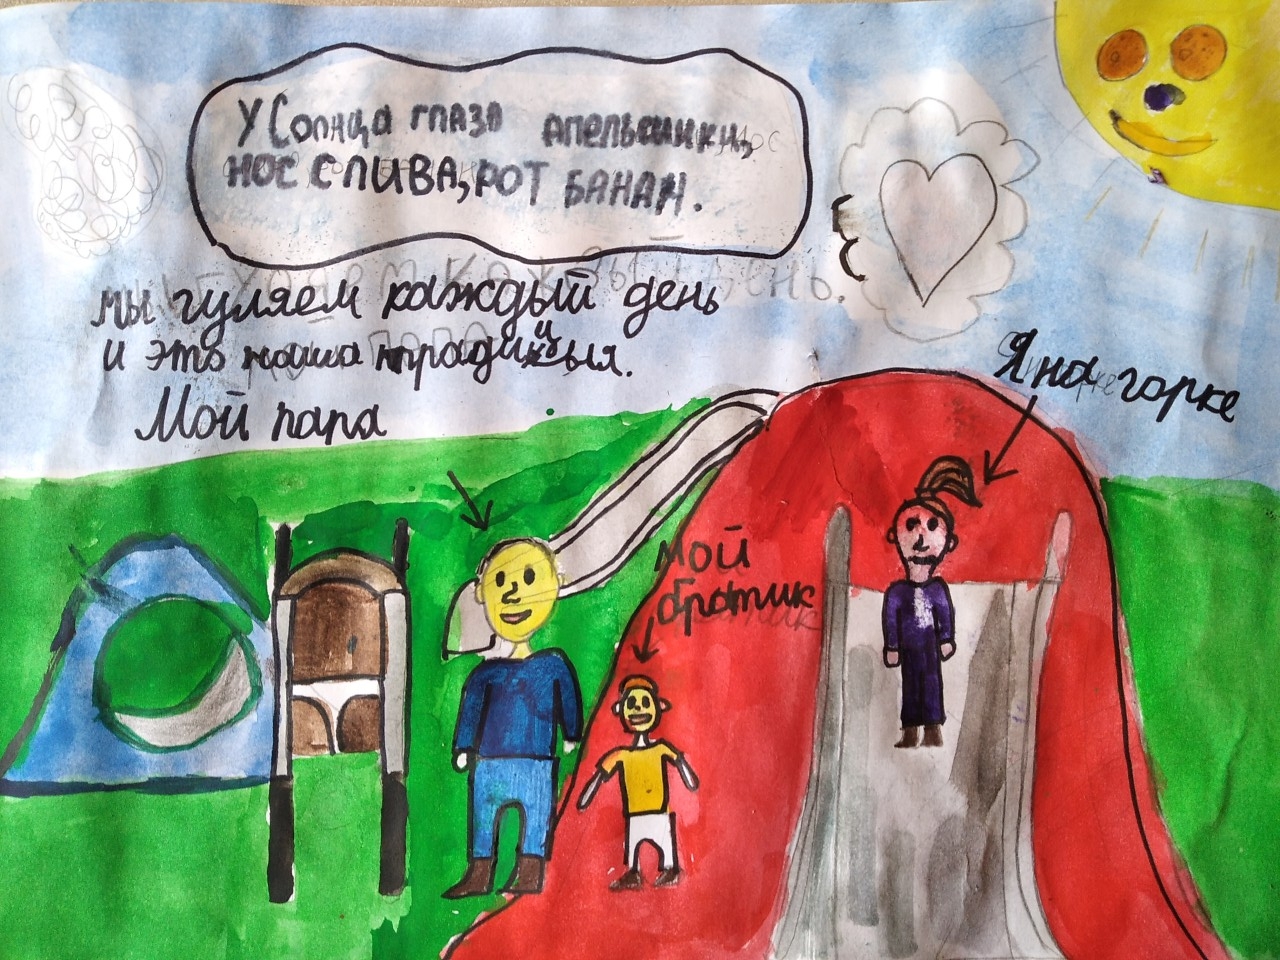 У Солнца глаза апельсинки,
НОС СЛИВА, РОТ БАНАН.
мы гуляем каждый день
и это наша традицыя.
Мой папа
Я на горке
мой
братик